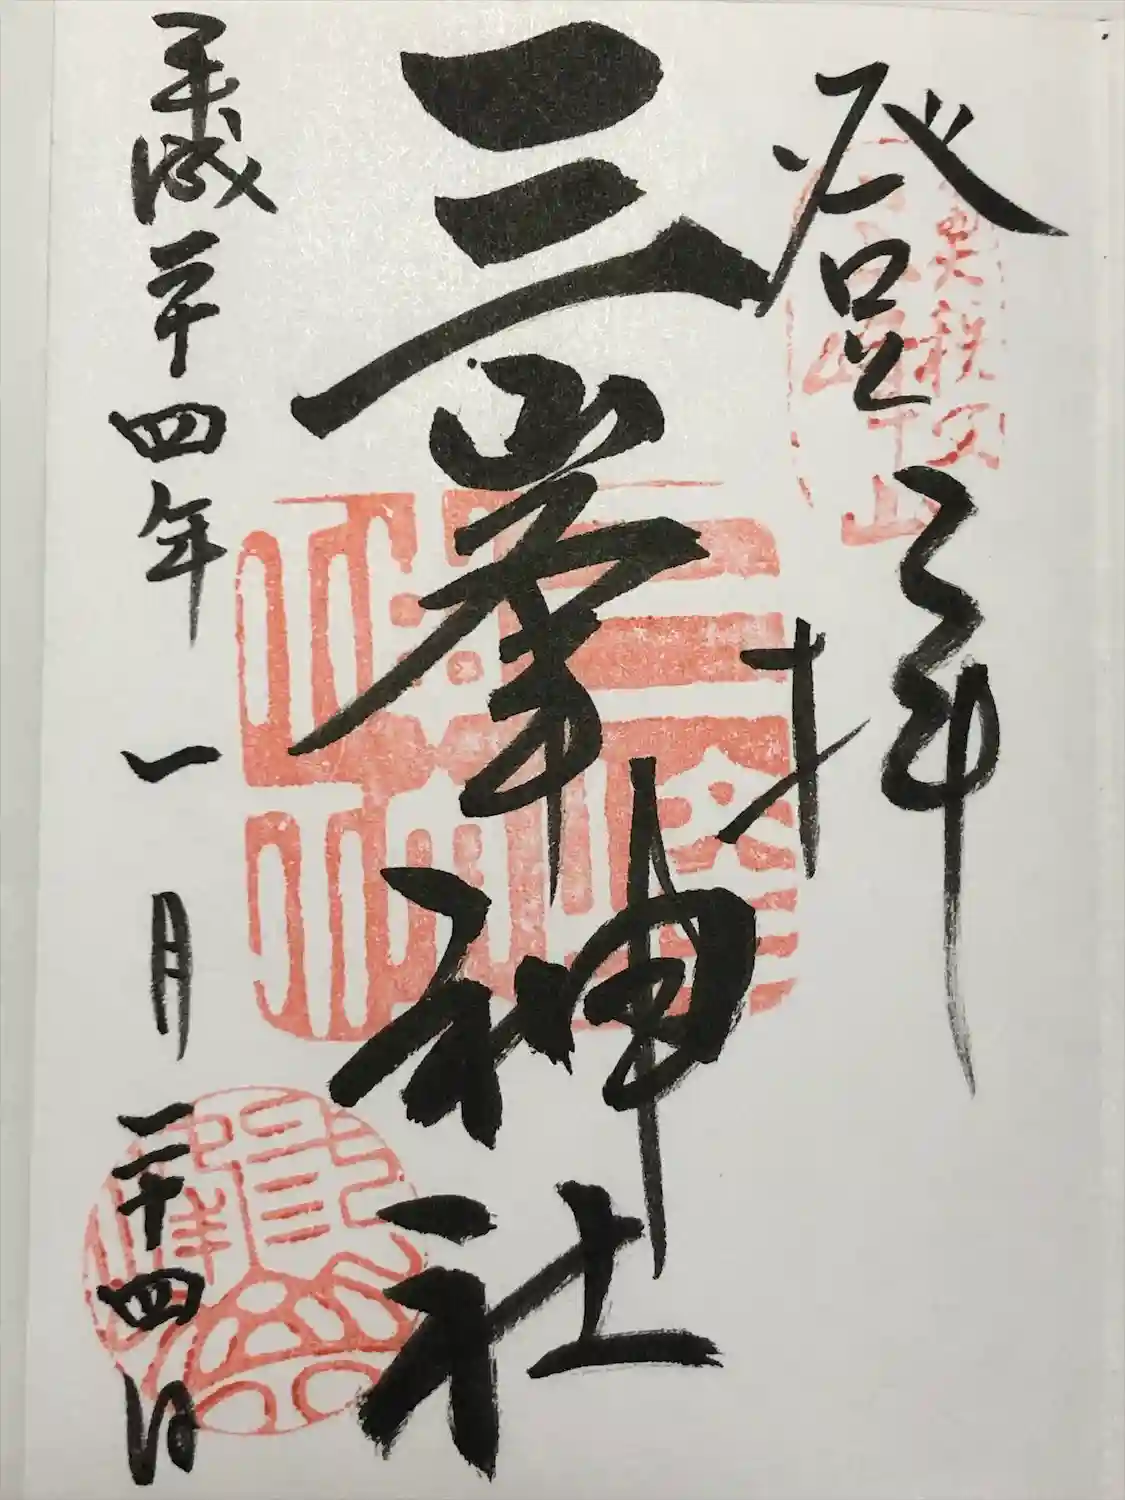 登拝
三峯神社
平成二十四年一月二十四日